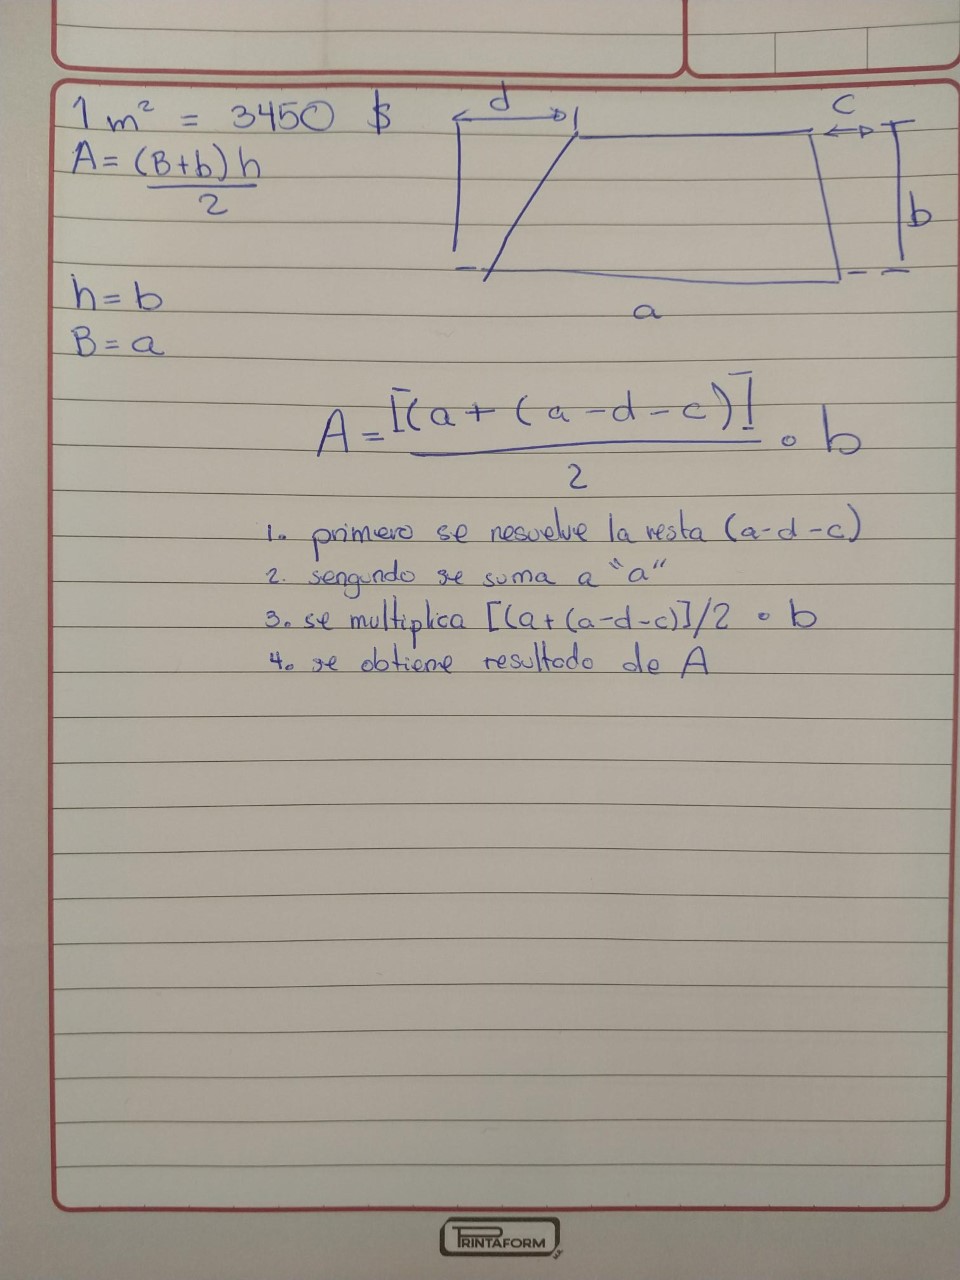 1 m² = 3450 $
A = (B+b) h
2
d
c
b
a
h = b
B = a
A = [(a + (a - d - c)]
2
• b
1. primero se resuelve la resta (a-d-c)
2. sengundo se suma a "a"
3. se multiplica [(a+(a-d-c)]/2 • b
4. se obtiene resultado de A
PRINTAFORM